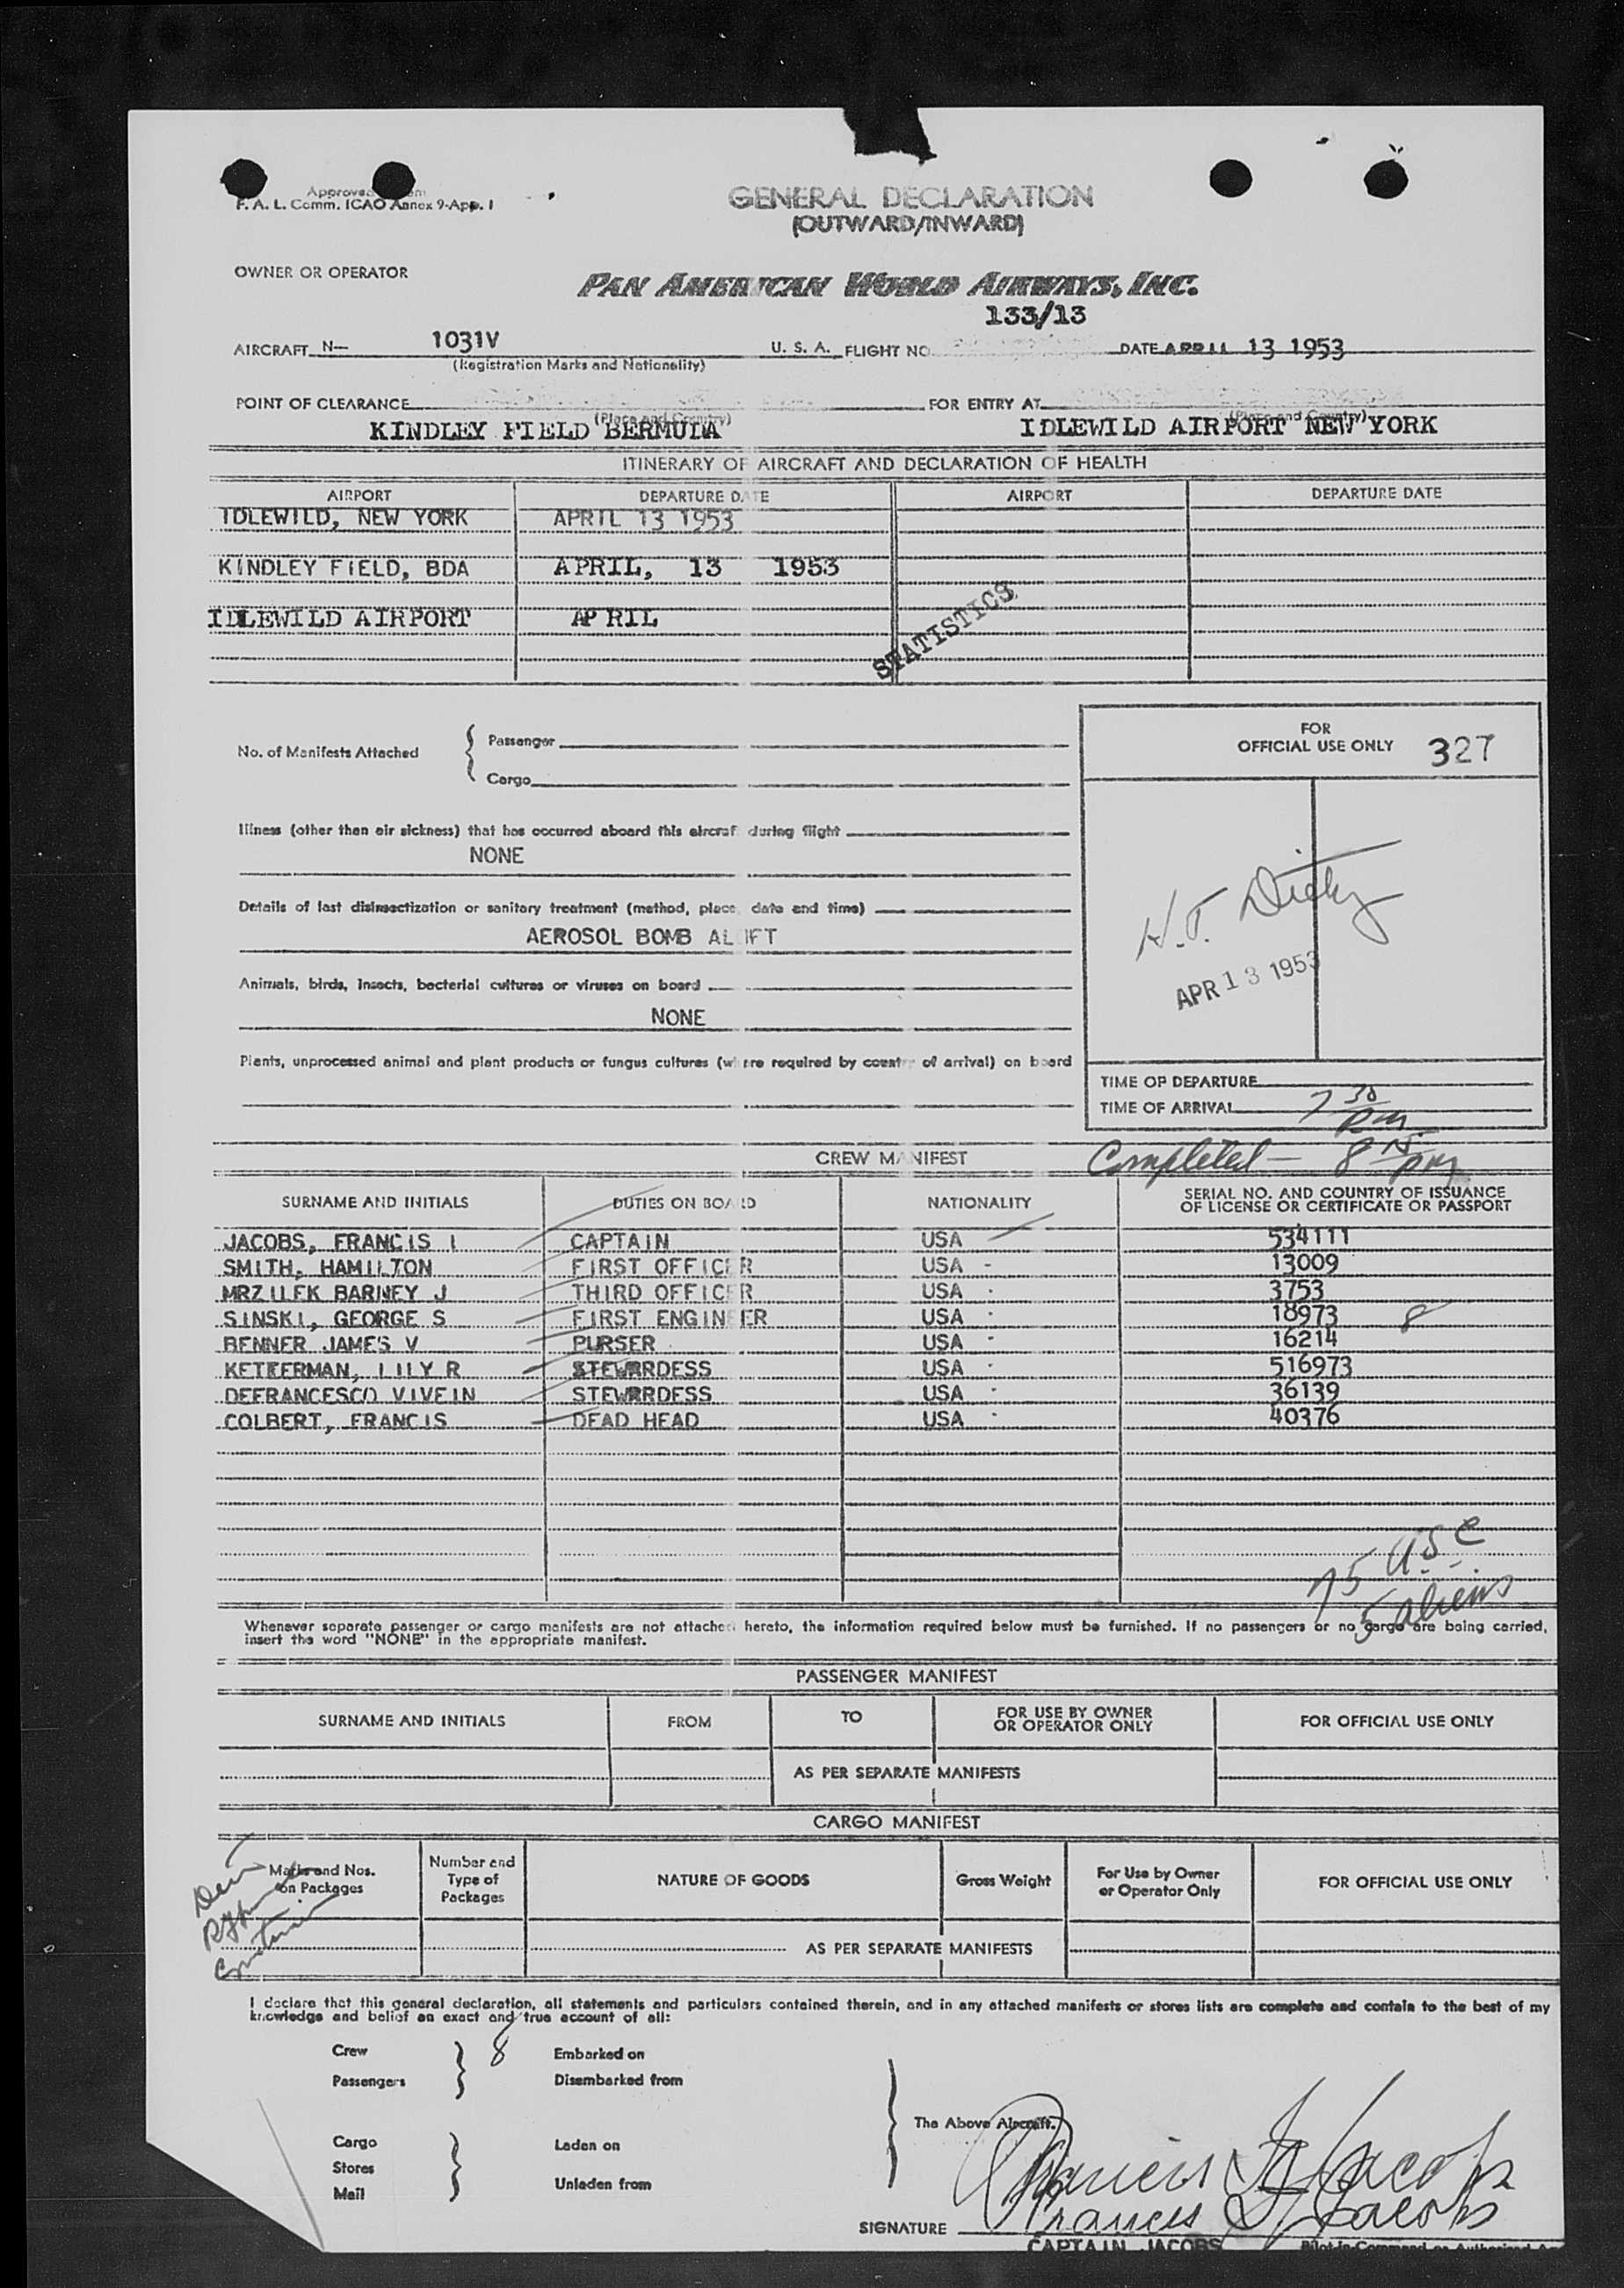 F. A. L. Comm. ICAO Annex 9-App. 1
GENERAL DECLARATION
(OUTWARD/INWARD)
OWNER OR OPERATOR
PAN AMERICAN WORLD AIRWAYS, INC.
133/13
AIRCRAFT N- 1031V U. S. A. FLIGHT NO. DATE APRIL 13 1953
(Registration Marks and Nationality)
POINT OF CLEARANCE FOR ENTRY AT
(Place and Country) (Place and Country)
KINDLEY FIELD BERMUDA IDLEWILD AIRPORT NEW YORK
ITINERARY OF AIRCRAFT AND DECLARATION OF HEALTH
AIRPORT DEPARTURE DATE AIRPORT DEPARTURE DATE
IDLEWILD, NEW YORK APRIL 13 1953
KINDLEY FIELD, BDA APRIL, 13 1953
IDLEWILD AIRPORT APRIL
STATISTICS
No. of Manifests Attached
Passenger
Cargo
FOR
OFFICIAL USE ONLY 327
Illness (other than air sickness) that has occurred aboard this aircraft during flight
NONE
Details of last disinsectization or sanitary treatment (method, place, date and time)
AEROSOL BOMB ALOFT
H.T. Dicky
APR 13 1953
Animals, birds, insects, bacterial cultures or viruses on board
NONE
Plants, unprocessed animal and plant products or fungus cultures (where required by country of arrival) on board
TIME OF DEPARTURE
TIME OF ARRIVAL 7 30 PM
Completed - 8 15 pm
CREW MANIFEST
SURNAME AND INITIALS DUTIES ON BOARD NATIONALITY SERIAL NO. AND COUNTRY OF ISSUANCE
OF LICENSE OR CERTIFICATE OR PASSPORT
JACOBS, FRANCIS I CAPTAIN USA 534111
SMITH, HAMILTON FIRST OFFICER USA 13009
MRZILEK BARNEY J THIRD OFFICER USA 3753
SINSKI, GEORGE S FIRST ENGINEER USA 18973 8
BENNER JAMES V PURSER USA 16214
KETTERMAN, LILY R STEWRRDESS USA 516973
DEFRANCESCO VIVEIN STEWRRDESS USA 36139
COLBERT, FRANCIS DEAD HEAD USA 40376
75 U.S.C
5 aliens
Whenever separate passenger or cargo manifests are not attached hereto, the information required below must be furnished. If no passengers or no cargo are being carried,
insert the word "NONE" in the appropriate manifest.
PASSENGER MANIFEST
SURNAME AND INITIALS FROM TO FOR USE BY OWNER
OR OPERATOR ONLY FOR OFFICIAL USE ONLY
AS PER SEPARATE MANIFESTS
CARGO MANIFEST
Marks and Nos.
on Packages Number and
Type of
Packages NATURE OF GOODS Gross Weight For Use by Owner
or Operator Only FOR OFFICIAL USE ONLY
AS PER SEPARATE MANIFESTS
I declare that this general declaration, all statements and particulars contained therein, and in any attached manifests or stores lists are complete and contain to the best of my
knowledge and belief an exact and true account of all:
Crew 8 Embarked on
Passengers Disembarked from
The Above Aircraft.
Cargo Laden on
Stores
Mail Unladen from
Francis I Jacobs
Francis I Jacobs
SIGNATURE
CAPTAIN JACOBS